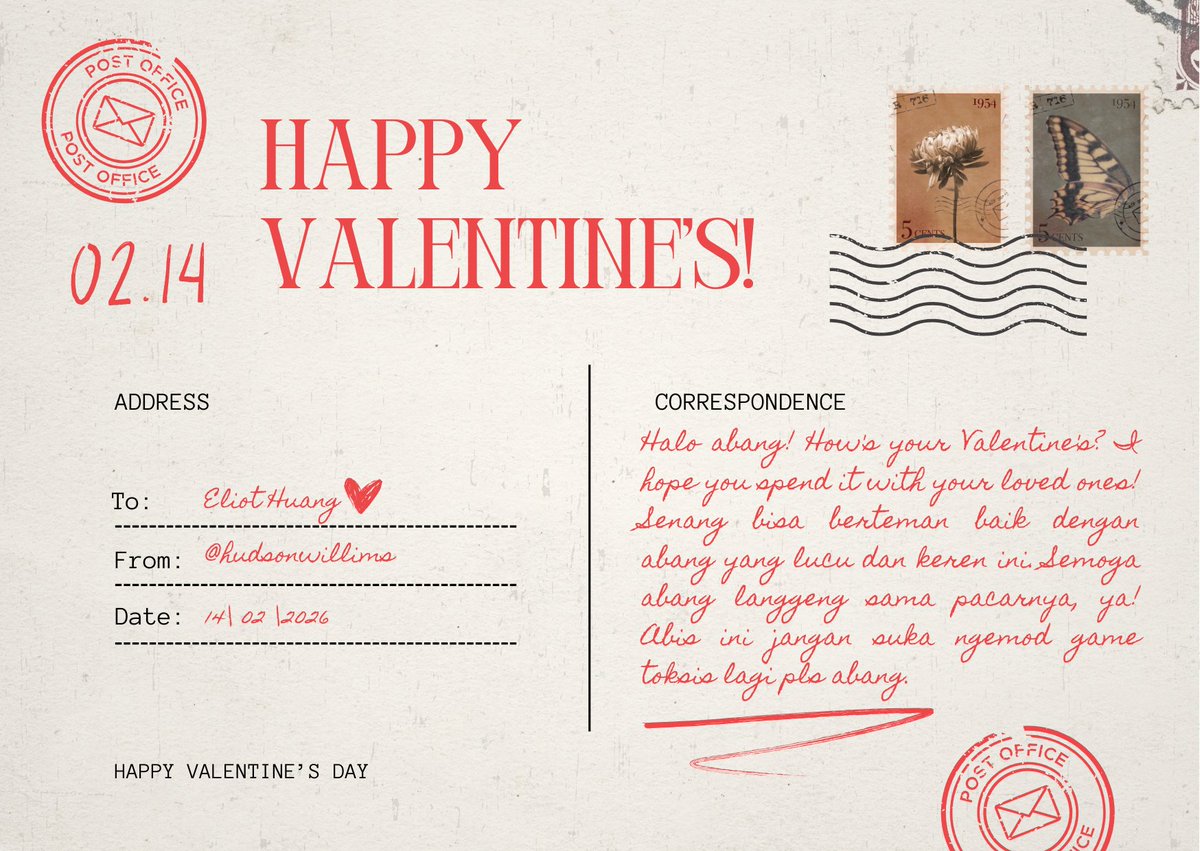 POST OFFICE
POST OFFICE
02.14
HAPPY
VALENTINE'S!
716
1954
5 CENTS
716
1954
5 CENTS
ADDRESS
To: Eliot Huang
From: @hudsonwillims
Date: 14| 02 |2026
HAPPY VALENTINE'S DAY
CORRESPONDENCE
Halo abang! How's your Valentine's? I
hope you spend it with your loved ones!
Senang bisa berteman baik dengan
abang yang lucu dan keren ini. Semoga
abang langgeng sama pacarnya, ya!
Abis ini jangan suka ngemod game
toksis lagi pls abang.
POST OFFICE
OFFICE